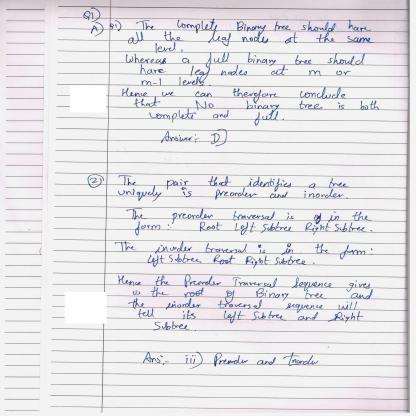 Q1)
A) Q1) The Complete Binary tree should have
all the leaf nodes at the same
level.
Whereas a full binary tree should
have leaf nodes at m or
m-1 levels
Hence we can therefore conclude
that No binary tree is both
complete and full.
Answer:- D]
(2) The pair that identifies a tree
uniquely is preorder and inorder.
The preorder traversal is in the
form: Root Left Subtree Right Subtree.
The inorder traversal is in the form:
Left Subtree Root Right Subtree.
Hence the Preorder Traversal Sequence gives
us the root of Binary tree and
the inorder traversal sequence will
tell its left Subtree and Right
Subtree
Ans:- iii) Preorder and Inorder